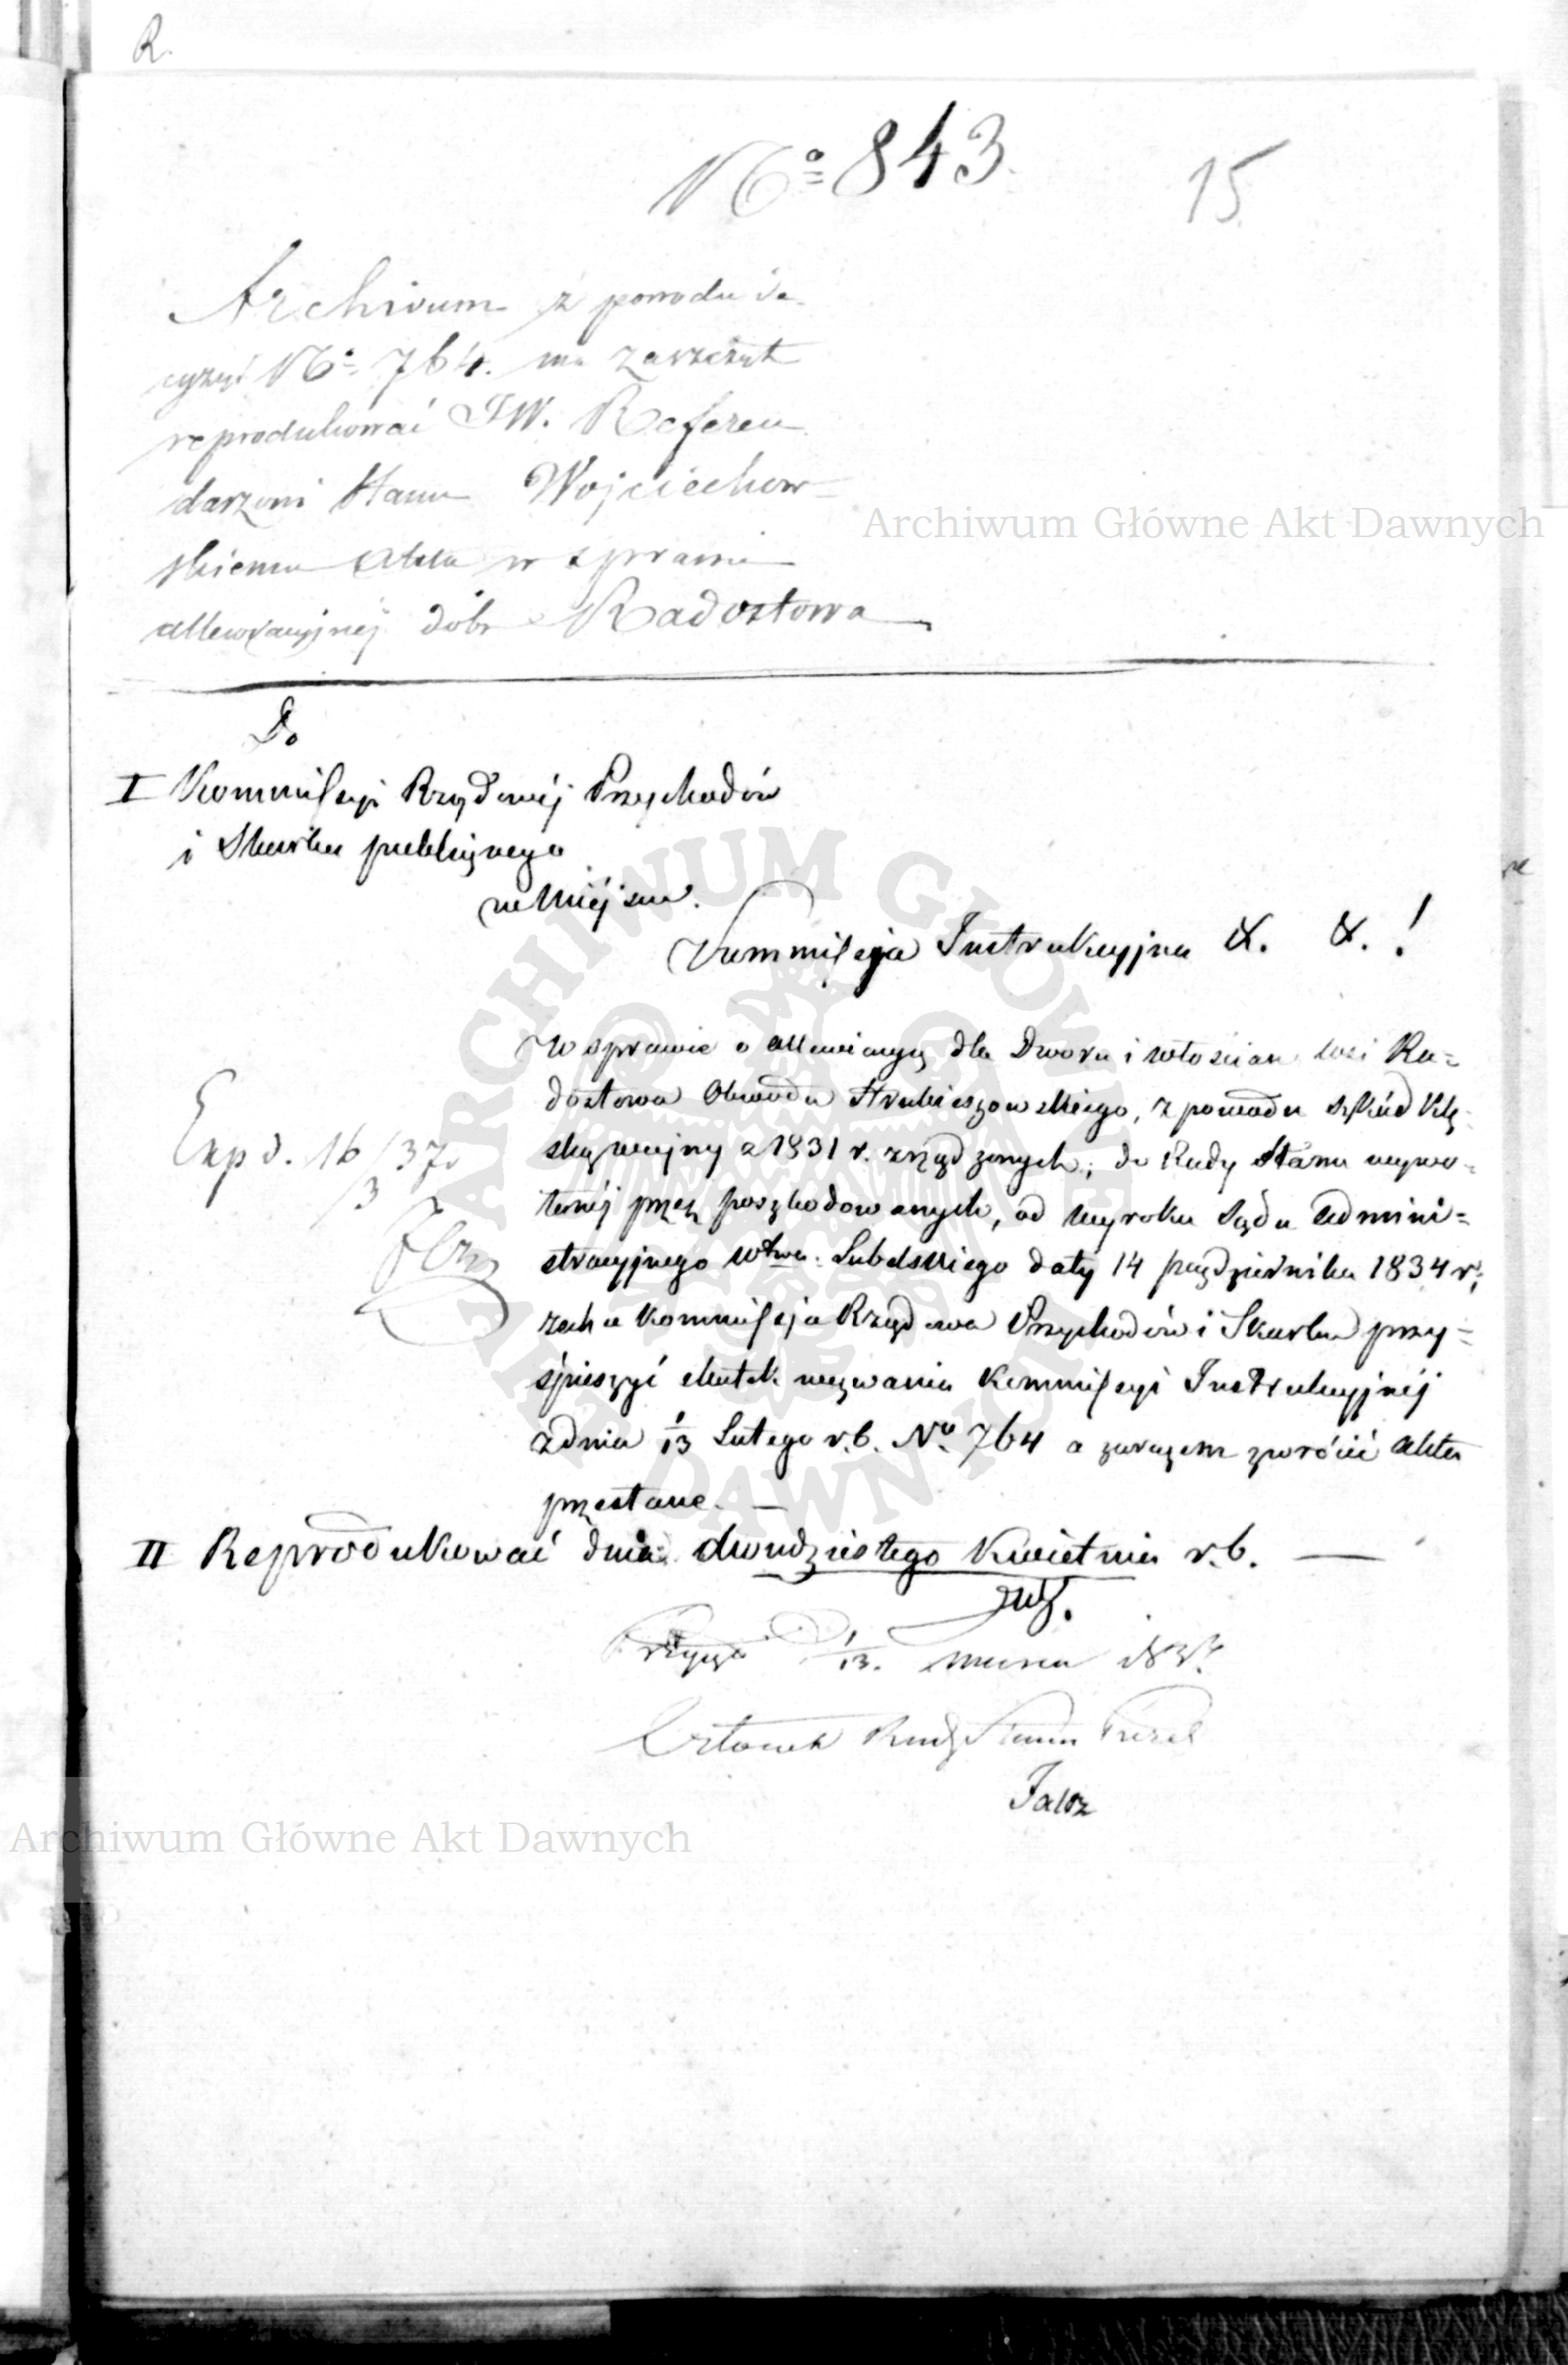 R.
No 843.
15
Archivum z powodu de-
cyzyi No 764. ma zaszczyt
reprodukować JW. Referen
darzowi Stanu Wojciechow-
skiemu Akta w sprawie
allewiacyjnéj dóbr Radostowa
Do
I Kommissyi Rządowéj Przychodów
i Skarbu publicznego
w Miejscu.
Kommissyja Instrukcyjna &. &. !
W sprawie o allewiacyą dla Dworu i włościan wsi Ra=
dostowa Obwodu Hrubieszowskiego, z powodu szkód klę-
ską wojny z 1831 r. zrządzonych; do Rady Stanu wywo-
łanéj przez poszkodowanych, od wyroku Sądu Admini=
stracyjnego Wtwa. Lubelskiego daty 14 października 1834 r;
zechce Kommissyja Rządowa Przychodów i Skarbu przy=
śpieszyć skutek wezwania Kommissyi Instrukcyjnéj
z dnia 1/13 Lutego r.b. No. 764 a zarazem zwrócić akta
przesłane. —
Exp d. 16/3 37r
II Reprodukować dnia dwudziestego Kwietnia r.b. —
D 1/13. marca 183
Członek Rady Stanu Prezes
Archiwum Główne Akt Dawnych
Archiwum Główne Akt Dawnych
ARCHIWUM GŁÓWNE
AKT DAWNYCH